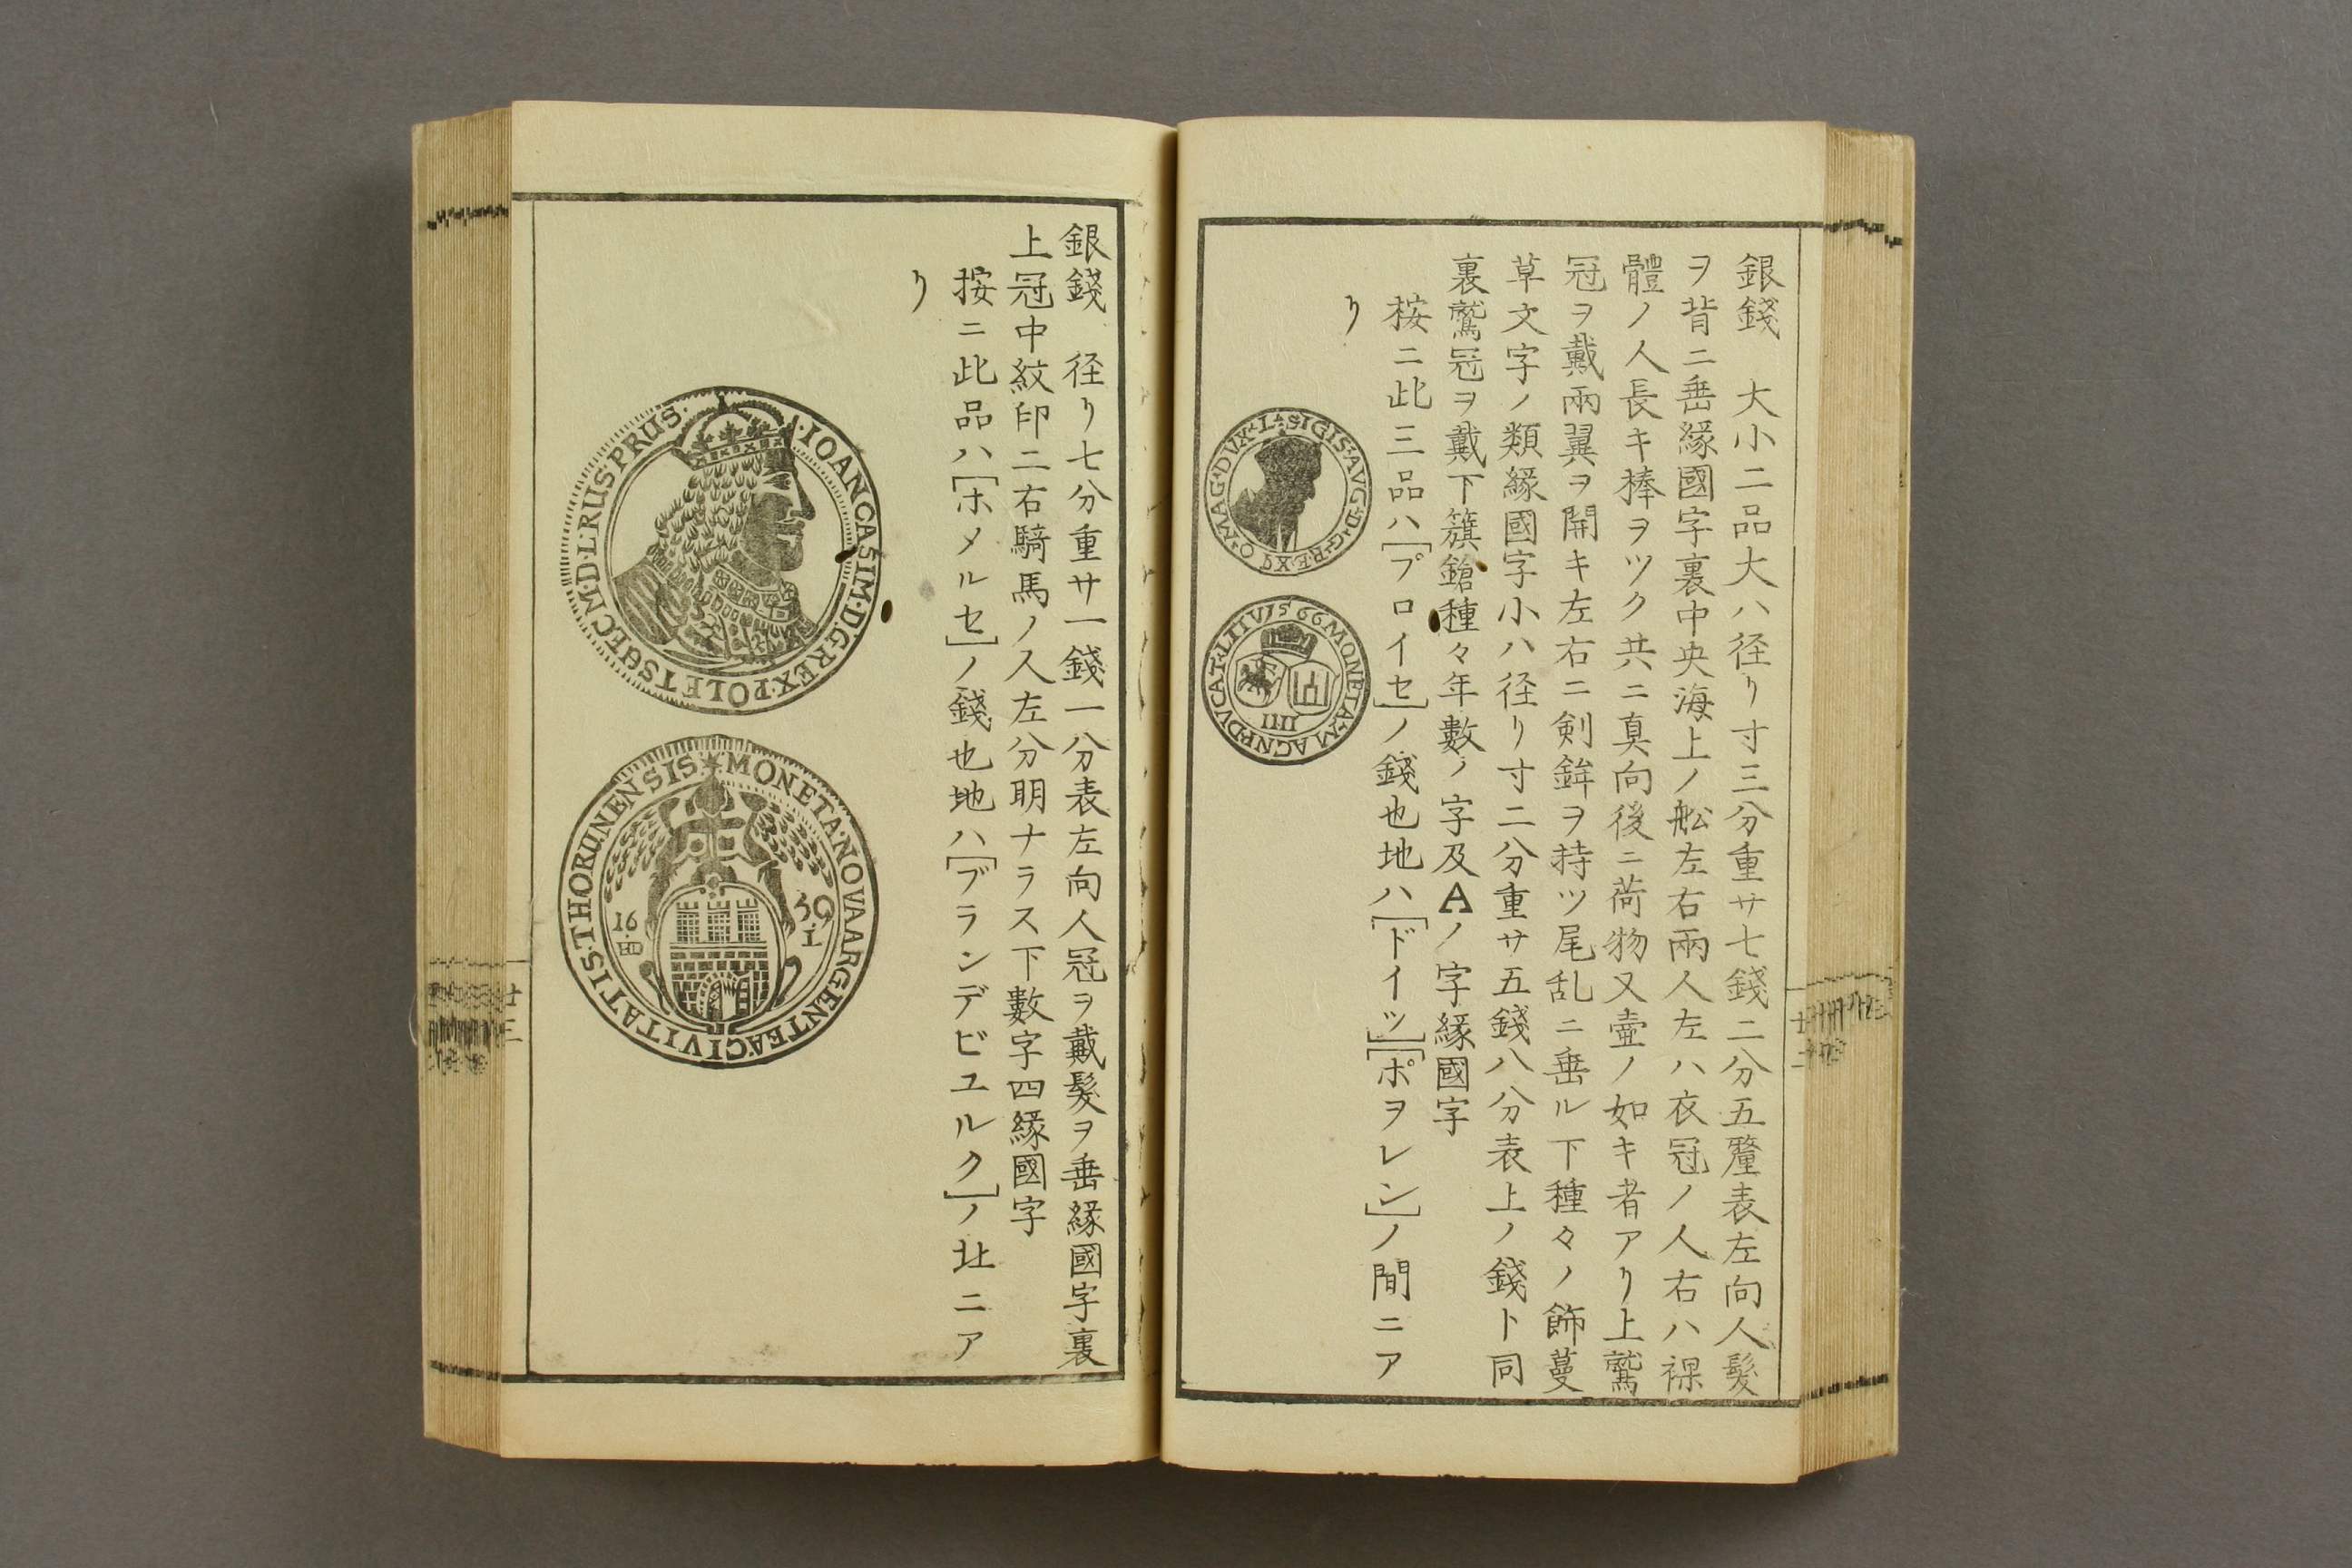 銀錢　大小二品大ハ径リ寸三分重サ七錢二分五釐表左向人髮
ヲ背ニ垂緣國字裏中央海上ノ舩左右兩人左ハ衣冠ノ人右ハ裸
體ノ人長キ棒ヲツク共ニ真向後ニ荷物又壷ノ如キ者アリ上鷲
冠ヲ戴兩翼ヲ開キ左右ニ剣鉾ヲ持ツ尾乱ニ垂ル下種々ノ飾蔓
草文字ノ類緣國字小ハ径リ寸二分重サ五錢八分表上ノ錢ト同
裏鷲冠ヲ戴下簱鎗種々年數ノ字及Aノ字緣國字
按ニ此三品ハ[プロイセ]ノ錢也地ハ[ドイツ][ポヲレン]ノ間ニア
リ
SIGIS·AVG·D·G·REX·PO·MAG·DVX·L
1566 MONETA·MAGNI·DVCAT·LITV
IIII
廿二
銀錢　径リ七分重サ一錢一分表左向人冠ヲ戴髮ヲ垂緣國字裏
上冠中紋印二右騎馬ノ人左分明ナラス下數字四緣國字
按ニ此品ハ[ホメルセ]ノ錢也地ハ[ブランデビユルク]ノ北ニア
リ
·IOAN·CASIM·D:G·REX·POL·ET·SUEC·M·D·L·RUS·PRUS·
MONETA·NOVA·ARGENTEA·CIVITATIS·THORUNENSIS
16 59
HI L
廿三